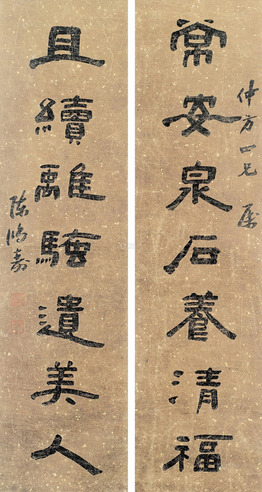 常安泉石養清福
仲方四兄屬
且續離騷遺美人
陳鴻壽